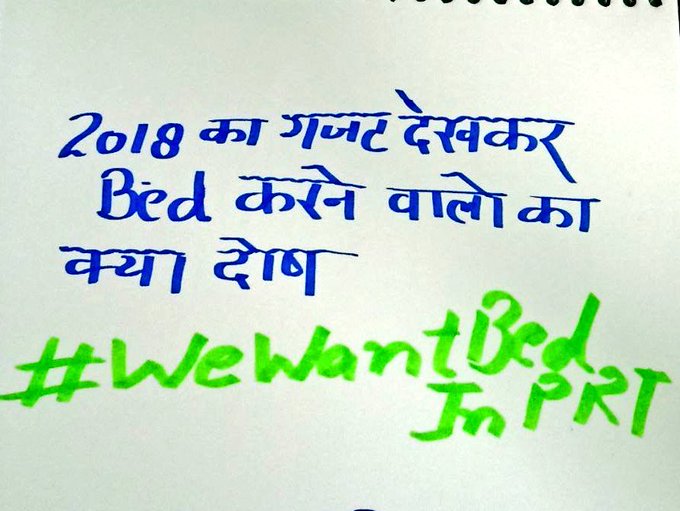 2018 का गजट देखकर
Bed करने वालो का
क्या दोष
#WeWantBed
In PRT